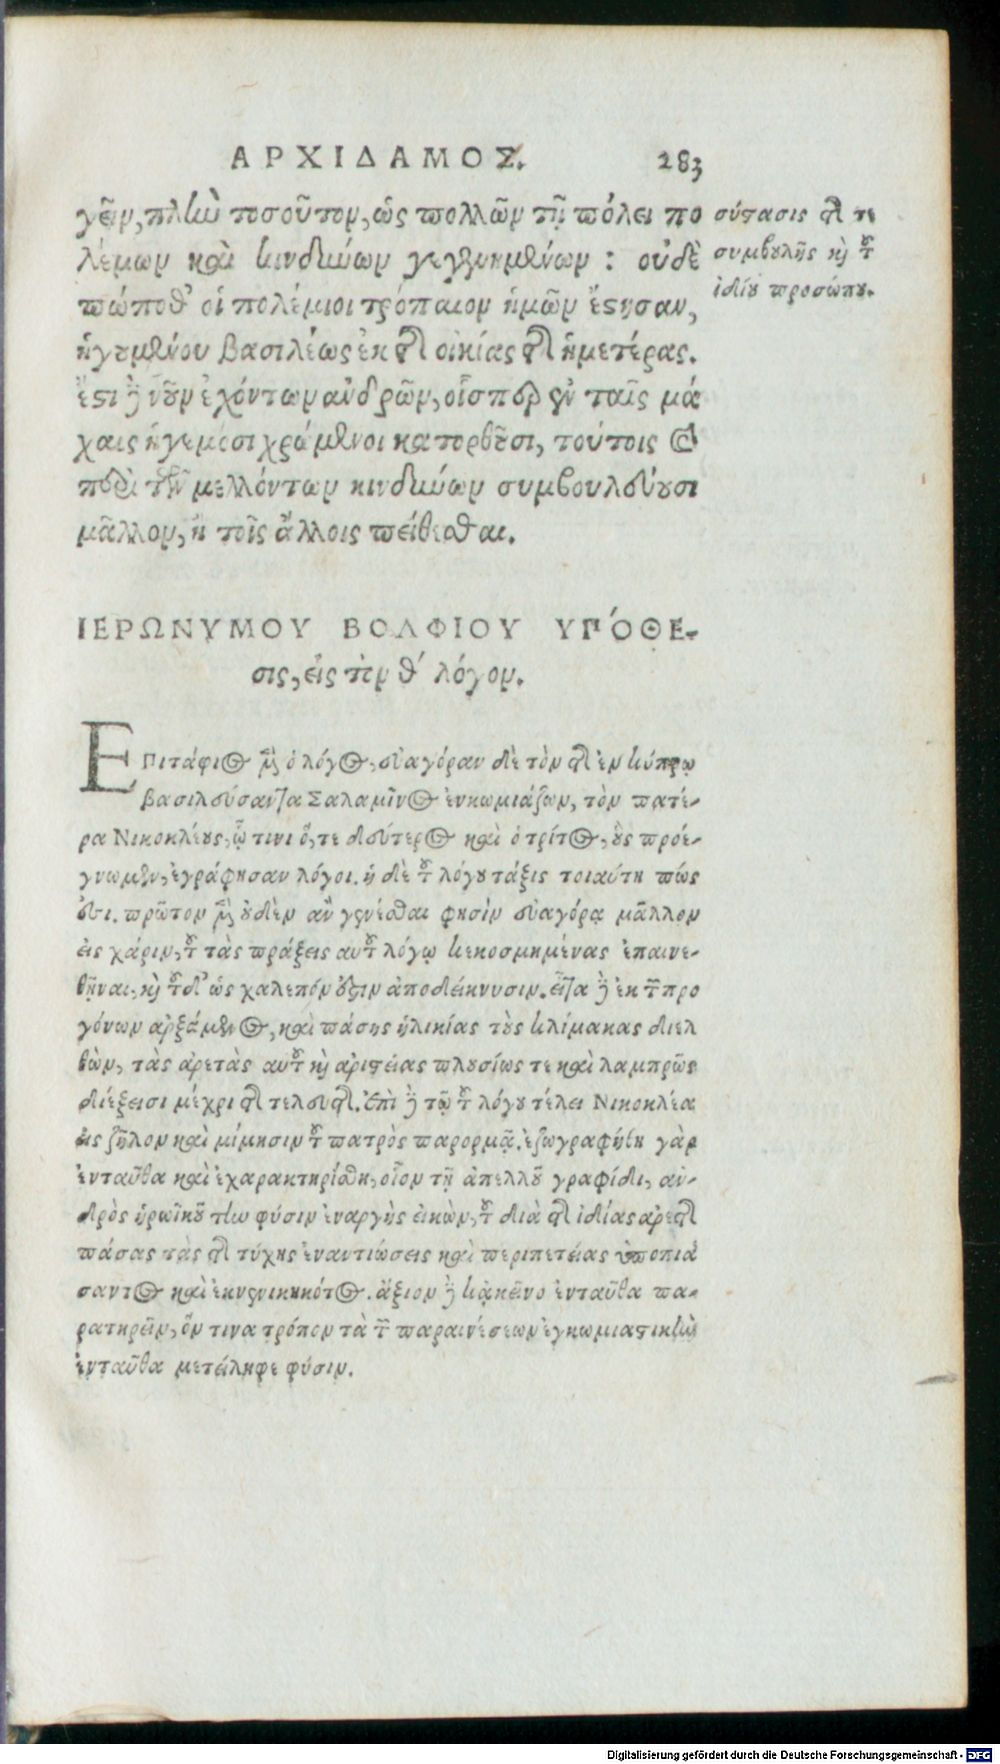 ΑΡΧΙΔΑΜΟΣ. 283
γεῖν, πλὴν τοσοῦτον, ὡς πολλῶν τῇ πόλει πο
λέμων καὶ κινδύνων γεγενημένων : οὐδὲ
πώποθ' οἱ πολέμιοι τρόπαιον ἡμῶν ἔστησαν,
ἡγουμένου βασιλέως ἐκ τῆς οἰκίας τῆς ἡμετέρας.
ἔστι δὲ νοῦν ἐχόντων ἀνδρῶν, οἷσπερ ἐν ταῖς μά
χαις ἡγεμόσι χρώμενοι κατορθοῦσι, τούτοις καὶ
περὶ τῶν μελλόντων κινδύνων συμβουλεύουσι
μᾶλλον, ἢ τοῖς ἄλλοις πείθεσθαι.
σύστασις τῆς τε
συμβουλῆς καὶ τοῦ
ἰδίου προσώπου.
ΙΕΡΩΝΥΜΟΥ ΒΟΛΦΙΟΥ ΥΠΌΘΕ-
σις, εἰς τὸν θ' λόγον.
ΕΠιτάφιος μὲν ὁ λόγος, εὐαγόραν δὲ τὸν τῆς ἐν κύπρῳ
βασιλεύσαντα Σαλαμῖνος ἐνκωμιάζων, τὸν πατέ-
ρα Νικοκλέους, ᾧ τινι ὅ, τε δεύτερος καὶ ὁ τρίτος, οὓς προέ-
γνωμεν, ἐγράφησαν λόγοι. ἡ δὲ τοῦ λόγου τάξις τοιαύτη πώς
ἐστι. πρῶτον μὲν οὐδὲν ἂν γενέσθαι φησὶν εὐαγόρᾳ μᾶλλον
εἰς χάριν, τοῦ τὰς πράξεις αὐτοῦ λόγῳ κεκοσμημένας ἐπαινε-
θῆναι, καὶ τοῦθ' ὡς χαλεπόν ἐστιν ἀποδείκνυσιν. εἶτα δὲ ἐκ τῶν προ
γόνων ἀρξάμενος, καὶ πάσης ἡλικίας τοὺς κλίμακας διελ
θὼν, τὰς ἀρετὰς αὐτοῦ καὶ ἀριστείας πλουσίως τε καὶ λαμπρῶς
διέξεισι μέχρι τῆς τελευτῆς. ἐπὶ δὲ τῷ τοῦ λόγου τέλει Νικοκλέα
εἰς ζῆλον καὶ μίμησιν τοῦ πατρὸς παρορμᾷ. ἐζωγραφήθη γὰρ
ἐνταῦθα καὶ ἐχαρακτηρίσθη, οἷον τῇ ἀπελλοῦ γραφίδι, ἀν-
δρὸς ἡρωϊκοῦ τὴν φύσιν ἐναργὴς εἰκὼν, τοῦ διὰ τῆς ἰδίας ἀρετῆς
πάσας τὰς τῆς τύχης ἐναντιώσεις καὶ περιπετείας ὑποπιά
σαντος καὶ ἐκνενικηκότος. ἄξιον δὲ κᾀκεῖνο ἐνταῦθα πα-
ρατηρεῖν, ὅν τινα τρόπον τὰ τῶν παραινέσεων ἐγκωμιαστικὴν
ἐνταῦθα μετείληφε φύσιν.
Digitalisierung gefördert durch die Deutsche Forschungsgemeinschaft - DFG